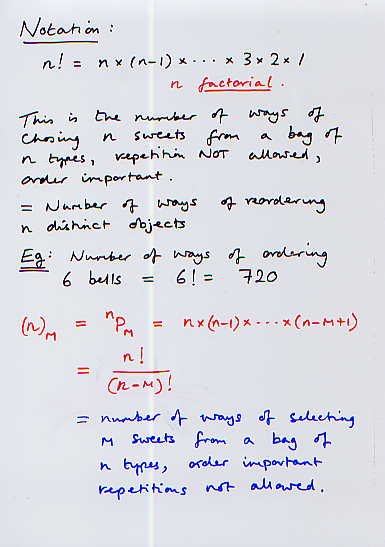 Notation:
n! = n × (n-1) × ··· × 3 × 2 × 1
n factorial.
This is the number of ways of
chosing n sweets from a bag of
n types, repetition NOT allowed,
order important.
= Number of ways of reordering
n distinct objects
Eg: Number of ways of ordering
6 bells = 6! = 720
(n)_M = ⁿP_M = n×(n-1)×···×(n-M+1)
= n!/(n-M)!
= number of ways of selecting
M sweets from a bag of
n types, order important
repetitions not allowed.